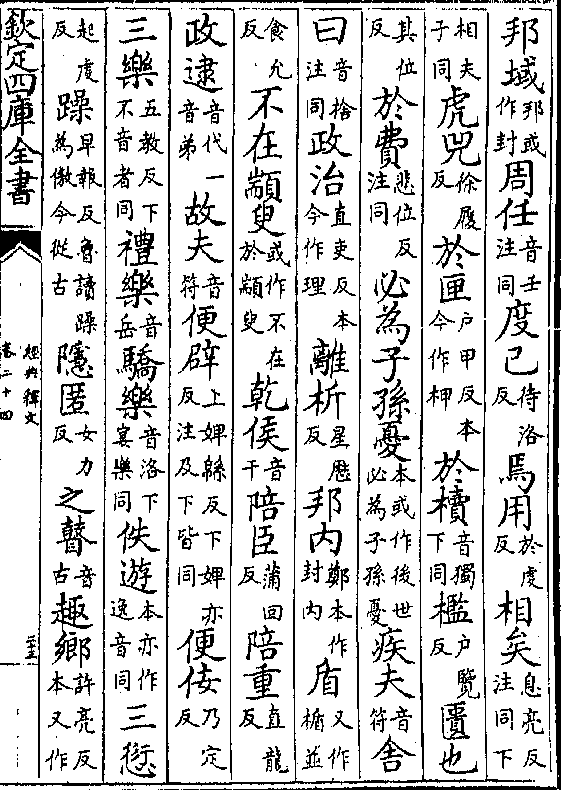 邦域邦或作封周任音壬注同度已待洛反焉用於虔反相矣息亮反注同下
相夫子同虎兕徐履反於匣户甲反本今作柙於櫝音獨下同檻户覽反匱也
其位反於費悲位反注同必為子孫憂本或作後世必為子孫憂疾夫音符舍
音捨注同曰政治直吏反本今作理離析星歷反邦内鄭本作封内盾又作楯並
食允反不在顓臾或作不在於顓臾乾侯音干陪臣蒲回反陪重直龍反
政逮音代一音弟故夫音符便辟上婢緜反下婢亦反注及下皆同便佞乃定反
三樂五教反下不音者同禮樂音岳驕樂音洛下宴樂同佚遊本亦作逸音同三愆
起虔反躁早報反魯讀躁為傲今從古隱匿女力反之瞽音古趣鄉許亮反本又作
欽定四庫全書
經典釋文
卷二十四